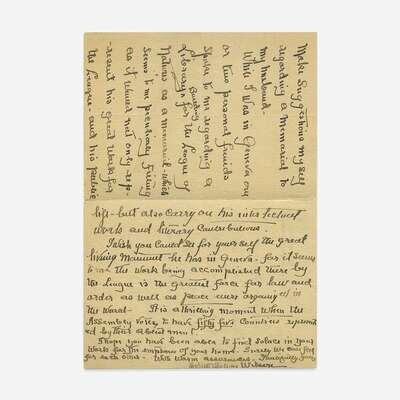 Make Suggestions myself
regarding a memorial to
my husband-
While I was in Geneva one
or two personal friends
spoke to me regarding a
Library for the League of
Building
Nations as a memorial- which
Seems to me peculiarly fitting
as it would not only rep-
resent his great work for
the League- and his public
life- but also carry on his intellectual
works and literary contributions.
I wish you could see for yourself the great
living monument he has in Geneva- for it seems
to me the work being accomplished there by
the League is the greatest force for law and
order as well as peace ever organized in
the world- It is a thrilling moment when the
Assembly votes, to have fifty five Countries represent
ed by their ablest men!
I hope you have been able to find solace in your
work for the emptiness of your home. Surely we can feel
for each other- With warm assurances-
Wilson